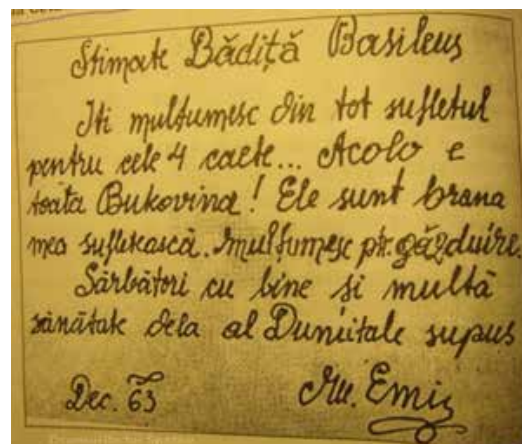 Stimate Bădiță Basileus
Iti mulțumesc din tot sufletul
pentru cele 4 caete... Acolo e
toata Bukovina! Ele sunt hrana
mea sufletească. mulțumesc ptr. găzduire.
Sărbători cu bine si multă
sănătate dela al Dumitale supus
Dec. 63
Emi